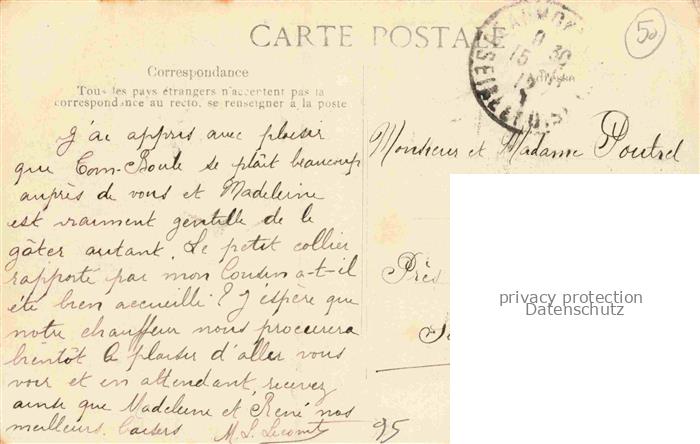 CARTE POSTALE
50
Correspondance
Tous les pays étrangers n'acceptent pas la
correspondance au recto, se renseigner à la poste
J'ai appris avec plaisir
que Tom-Boule se plaît beaucoup
auprès de vous et Madeleine
est vraiment gentille de le
gâter autant. Le petit collier
rapporté par mon Cousin a-t-il
été bien accueilli ? J'espère que
notre chauffeur nous procurera
bientôt le plaisir d'aller vous
voir et en attendant, recevez
ainsi que Madeleine et René nos
meilleurs baisers M. L. Lecomte
Monsieur et Madame
Près
95
SEINE-ET-OISE
privacy protection
Datenschutz